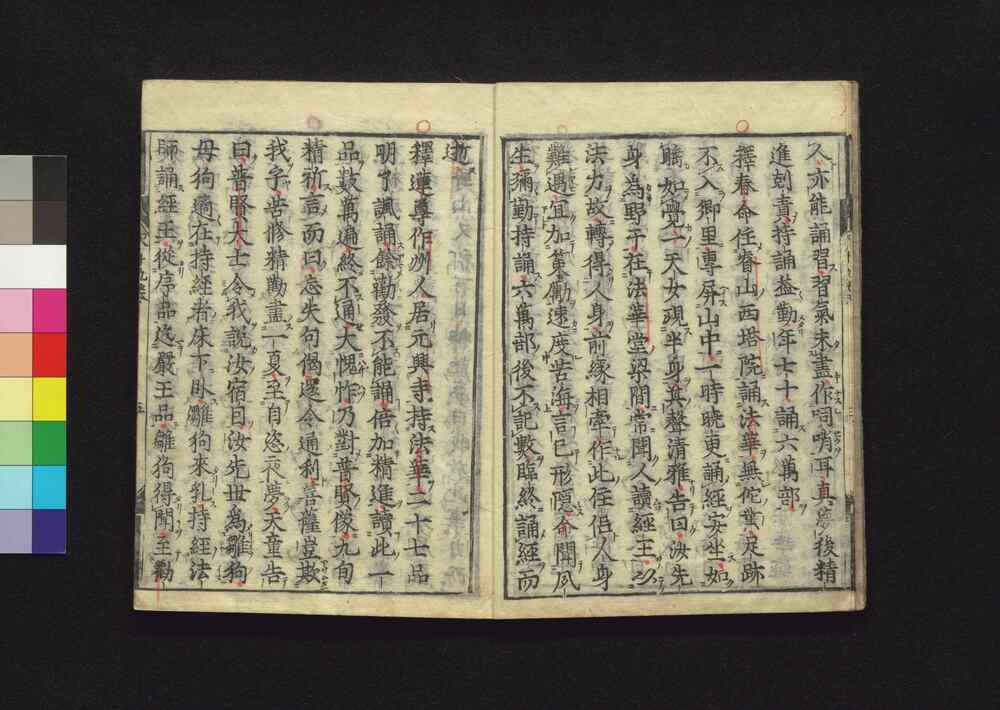 久亦能誦習習氣未盡作呞哨耳真
後精
進剋責持誦益勤年七十誦六萬部
釋春命住睿山西塔院誦法華無佗業足跡
不入鄉里專屏山中一時曉更誦經安坐如
睡如覺一天女現半身其聲清雅告曰汝先
身為野干在法華堂梁間常聞人讀經王以
法力故轉得人身前緣相牽作此住侶人身
難遇宜加策勵速度苦海言已形隱命聞夙
生彌勤持誦六萬部後不記數臨終誦經而
釋蓮尊作州人居元興寺持法華二十七品
明了諷誦餘勸發不能誦倍加精進讀此一
品數萬遍終不通大愧怍乃對普賢像九旬
精祈言而曰忘失句偈還令通利菩薩豈欺
我乎苦修精勤盡一夏至自恣夜夢天童告
曰普賢大士令我說汝宿因汝先世為雛狗
母狗適在持經者床下臥雛狗來乳持經法
師誦經王從序品迄嚴王品雛狗得聞至勸